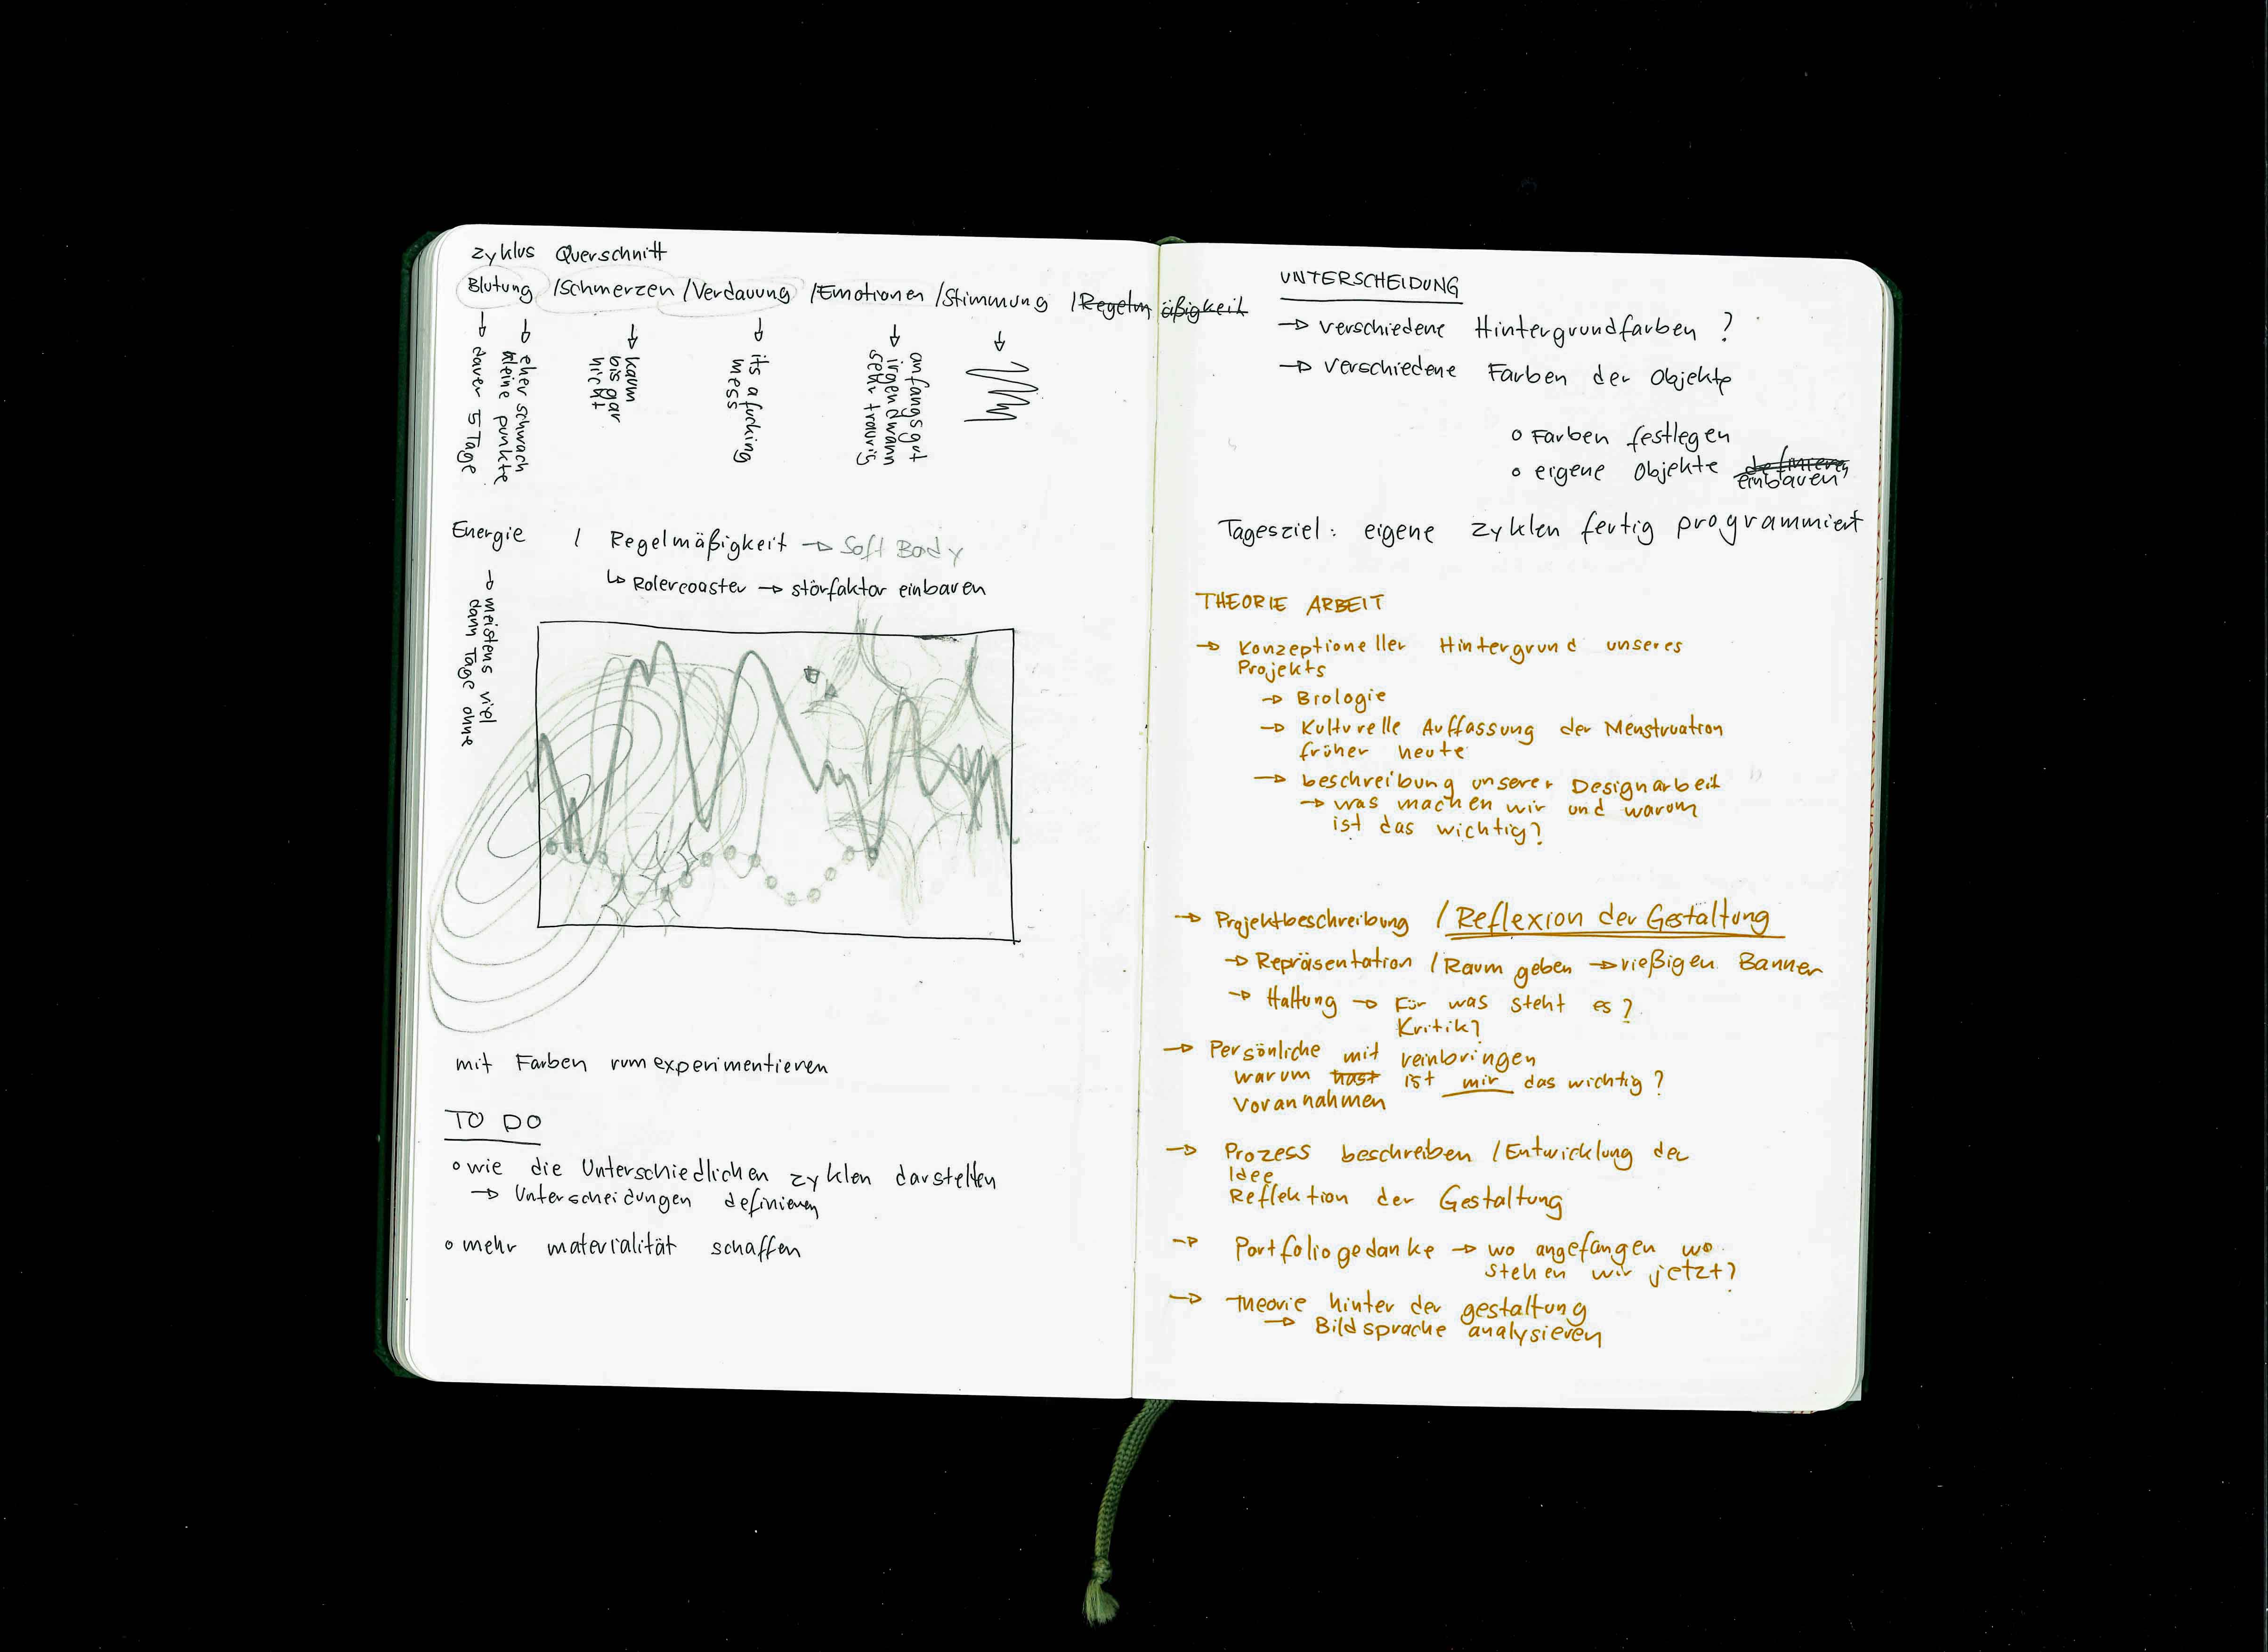 zyklus Querschnitt
Blutung /Schmerzen /Verdauung /Emotionen /Stimmung /Regelmäßigkeit
→ dauer 5 Tage
→ eher schwach
kleine punkte
→ kaum
bis gar
nicht
→ its a fucking
mess
→ anfangs gut
irgendwann
sehr traurig
Energie / Regelmäßigkeit → Soft Body
↳ Rolercoaster → störfaktor einbauen
→ meistens viel
dann Tage ohne
mit Farben rumexperimentieren
TO DO
o wie die Unterschiedlichen zyklen darstellen
→ Unterscheidungen definieren
o mehr materialität schaffen
UNTERSCHEIDUNG
→ verschiedene Hintergrundfarben ?
→ verschiedene Farben der Objekte
o Farben festlegen
o eigene Objekte definieren
einbauen
Tagesziel: eigene zyklen fertig programmiert
THEORIE ARBEIT
→ Konzeptioneller Hintergrund unseres
Projekts
→ Biologie
→ Kulturelle Auffassung der Menstruation
früher heute
→ beschreibung unserer Designarbeit
→ was machen wir und warum
ist das wichtig?
→ Projektbeschreibung / Reflexion der Gestaltung
→ Repräsentation / Raum geben → rießigen Banner
→ Haltung → Für was steht es?
Kritik?
→ Persönliche mit reinbringen
warum hast ist mir das wichtig?
Vorannahmen
→ Prozess beschreiben / Entwicklung der
Idee
Reflektion der Gestaltung
→ Portfoliogedanke → wo angefangen wo
stehen wir jetzt?
→ Theorie hinter der gestaltung
→ Bildsprache analysieren